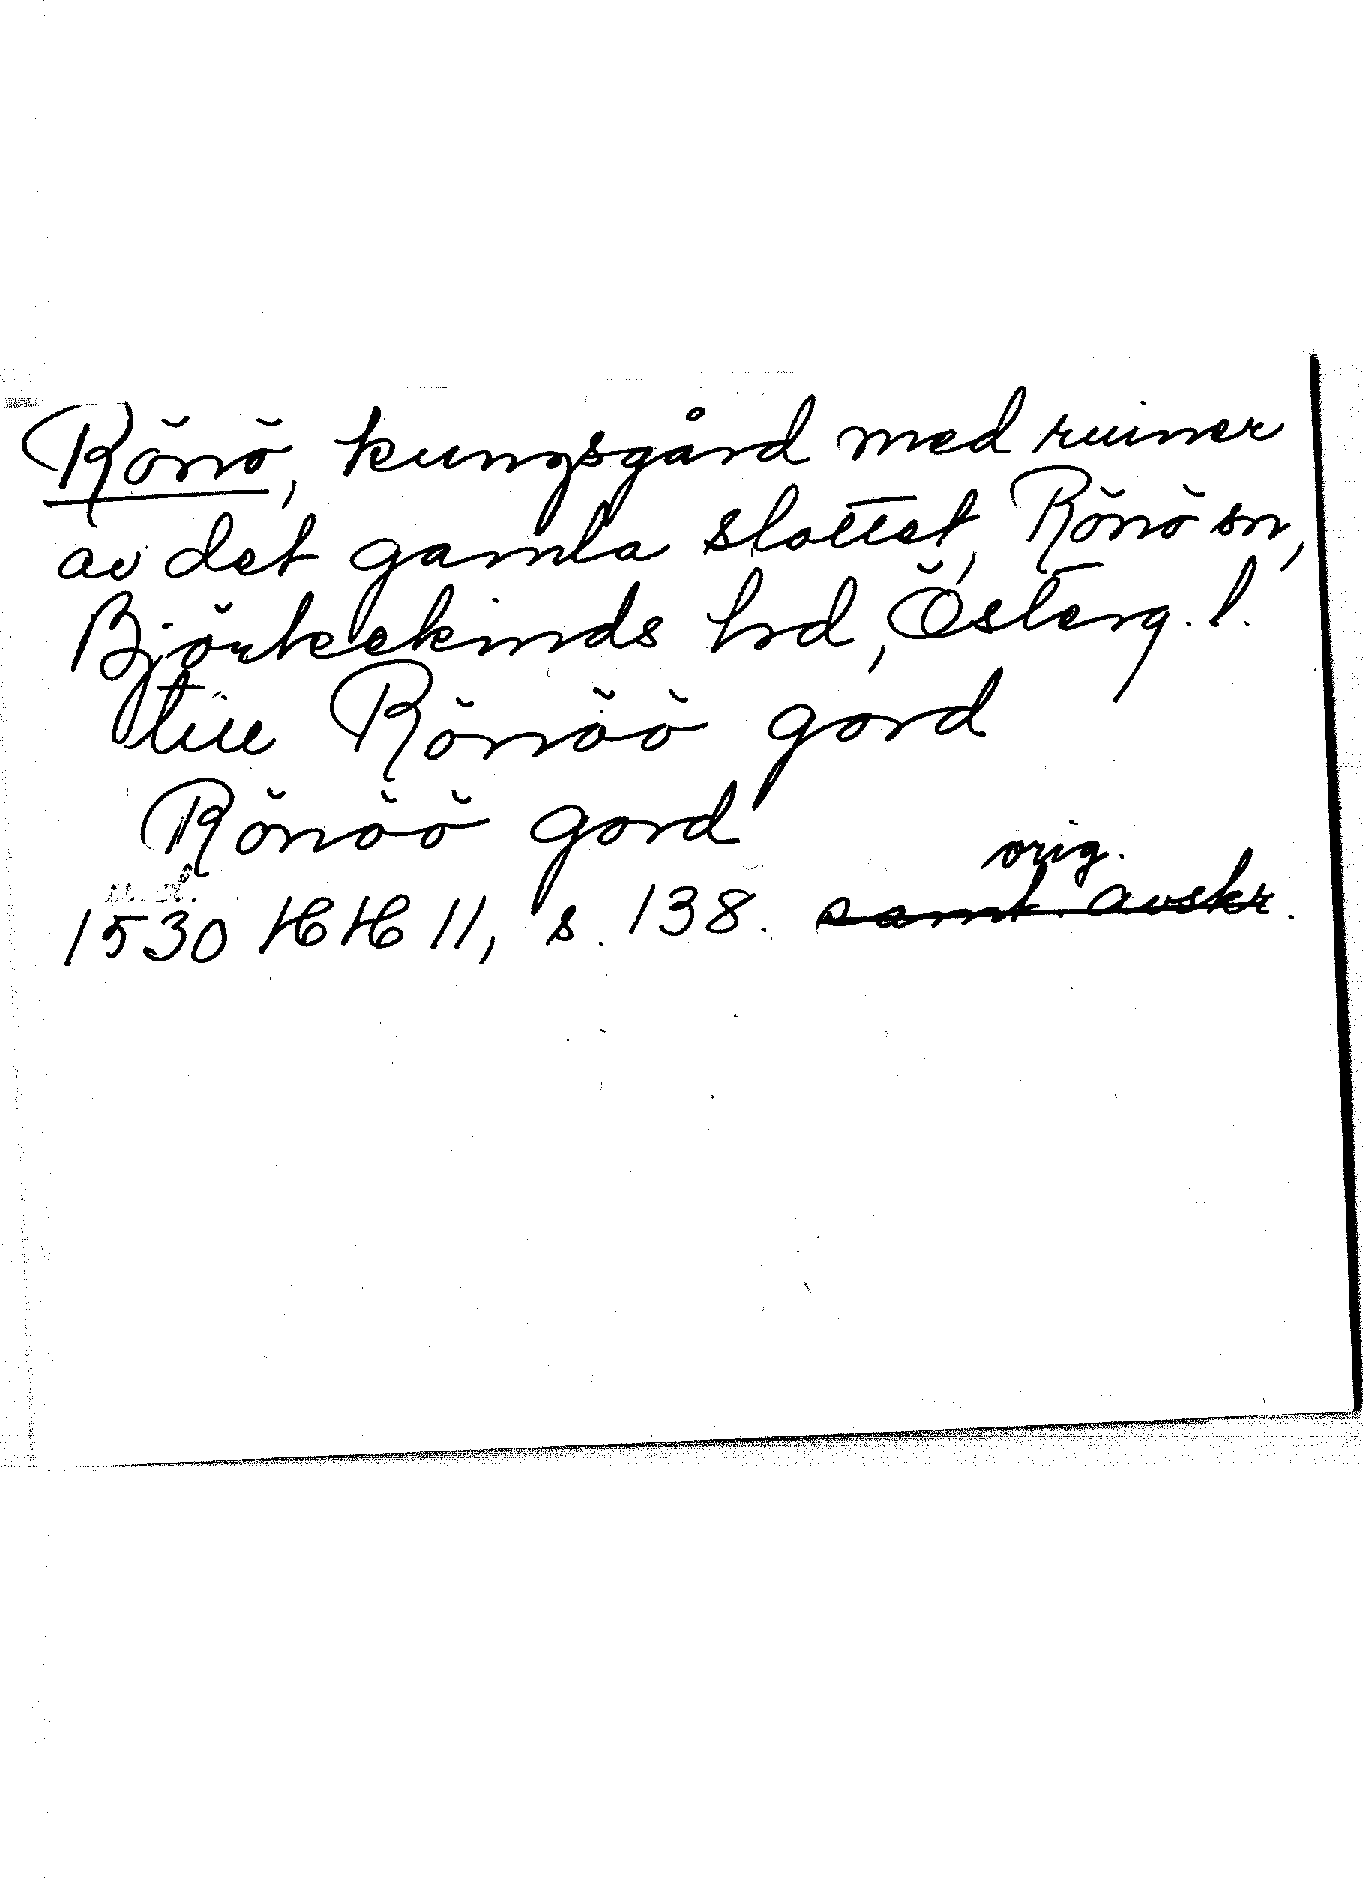 Rönö, kungsgård med ruiner
av det gamla slottet, Rönö sn,
Björkekinds hd, Österg. l.
till Rönöö gord
Rönöö gord
orig.
1530 HH 11, s. 138. samt. avskr.